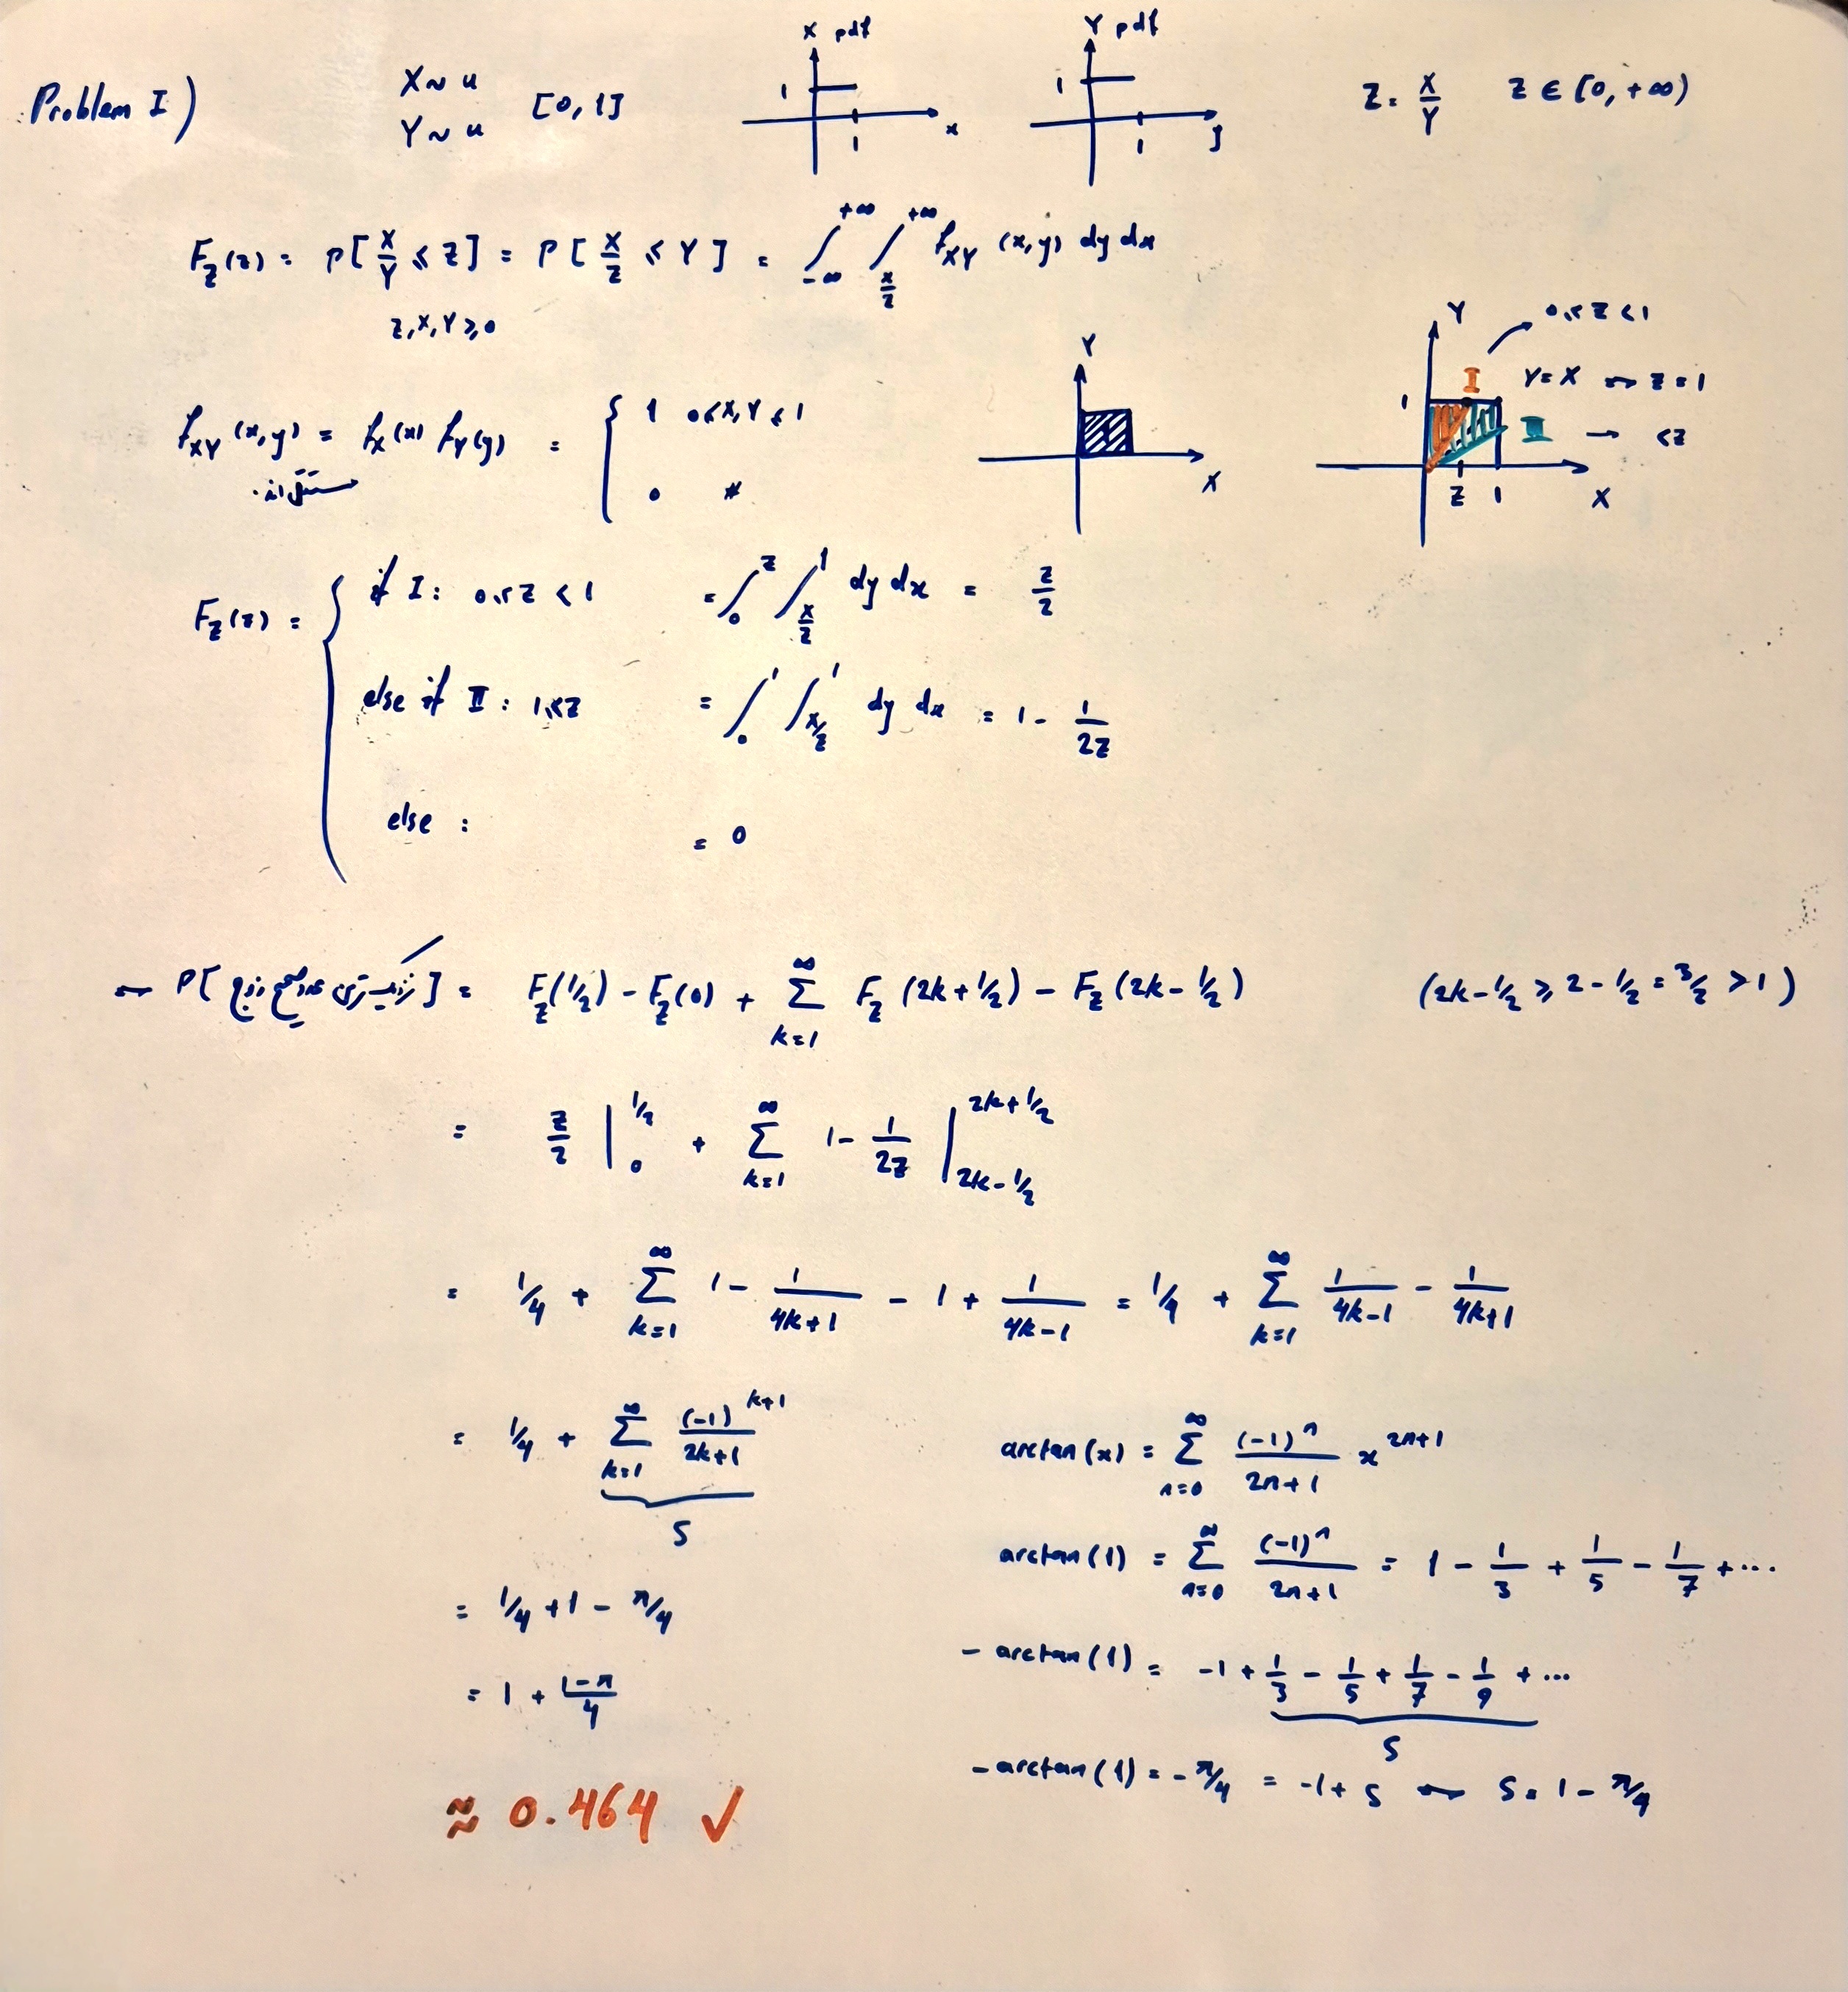 Problem I) X ~ u Y ~ u [0, 1] X pdf 1 1 x Y pdf 1 1 y Z = X/Y Z ∈ [0, +∞)
F_Z(z) = P[X/Y ≤ Z] = P[X/Z ≤ Y] = ∫_{-∞}^{+∞} ∫_{x/z}^{+∞} f_XY (x,y) dy dx
Z, X, Y ≥ 0
f_XY (x,y) = f_X(x) f_Y(y) = { 1 0 ≤ X, Y ≤ 1
0 *
مستقل‌اند.
Y X
Y 1 I 0 ≤ Z < 1
Y = X → z = 1
II → 1 ≤ Z
Z 1 X
F_Z(z) = { if I: 0 ≤ Z < 1 = ∫_0^z ∫_{x/z}^1 dy dx = z/2
else if II: 1 ≤ Z = ∫_0^1 ∫_{x/z}^1 dy dx = 1 - 1/2z
else: = 0
→ P[نزدیکترین عدد صحیح زوج] = F_Z(1/2) - F_Z(0) + Σ_{k=1}^∞ F_Z (2k + 1/2) - F_Z (2k - 1/2) (2k - 1/2 ≥ 2 - 1/2 = 3/2 > 1)
= z/2 |_0^{1/2} + Σ_{k=1}^∞ 1 - 1/2z |_{2k-1/2}^{2k+1/2}
= 1/4 + Σ_{k=1}^∞ 1 - 1/4k+1 - 1 + 1/4k-1 = 1/4 + Σ_{k=1}^∞ 1/4k-1 - 1/4k+1
= 1/4 + Σ_{k=1}^∞ (-1)^{k+1}/2k+1
S
= 1/4 + 1 - π/4
= 1 + 1-π/4
≈ 0.464 ✓
arctan(x) = Σ_{n=0}^∞ (-1)^n/2n+1 x^{2n+1}
arctan(1) = Σ_{n=0}^∞ (-1)^n/2n+1 = 1 - 1/3 + 1/5 - 1/7 + ...
- arctan(1) = -1 + 1/3 - 1/5 + 1/7 - 1/9 + ...
S
- arctan(1) = - π/4 = -1 + S → S = 1 - π/4